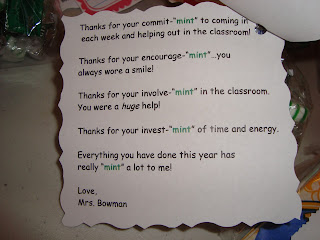 Thanks for your commit-"mint" to coming in
each week and helping out in the classroom!
Thanks for your encourage-"mint"...you
always wore a smile!
Thanks for your involve-"mint" in the classroom.
You were a huge help!
Thanks for your invest-"mint" of time and energy.
Everything you have done this year has
really "mint" a lot to me!
Love,
Mrs. Bowman